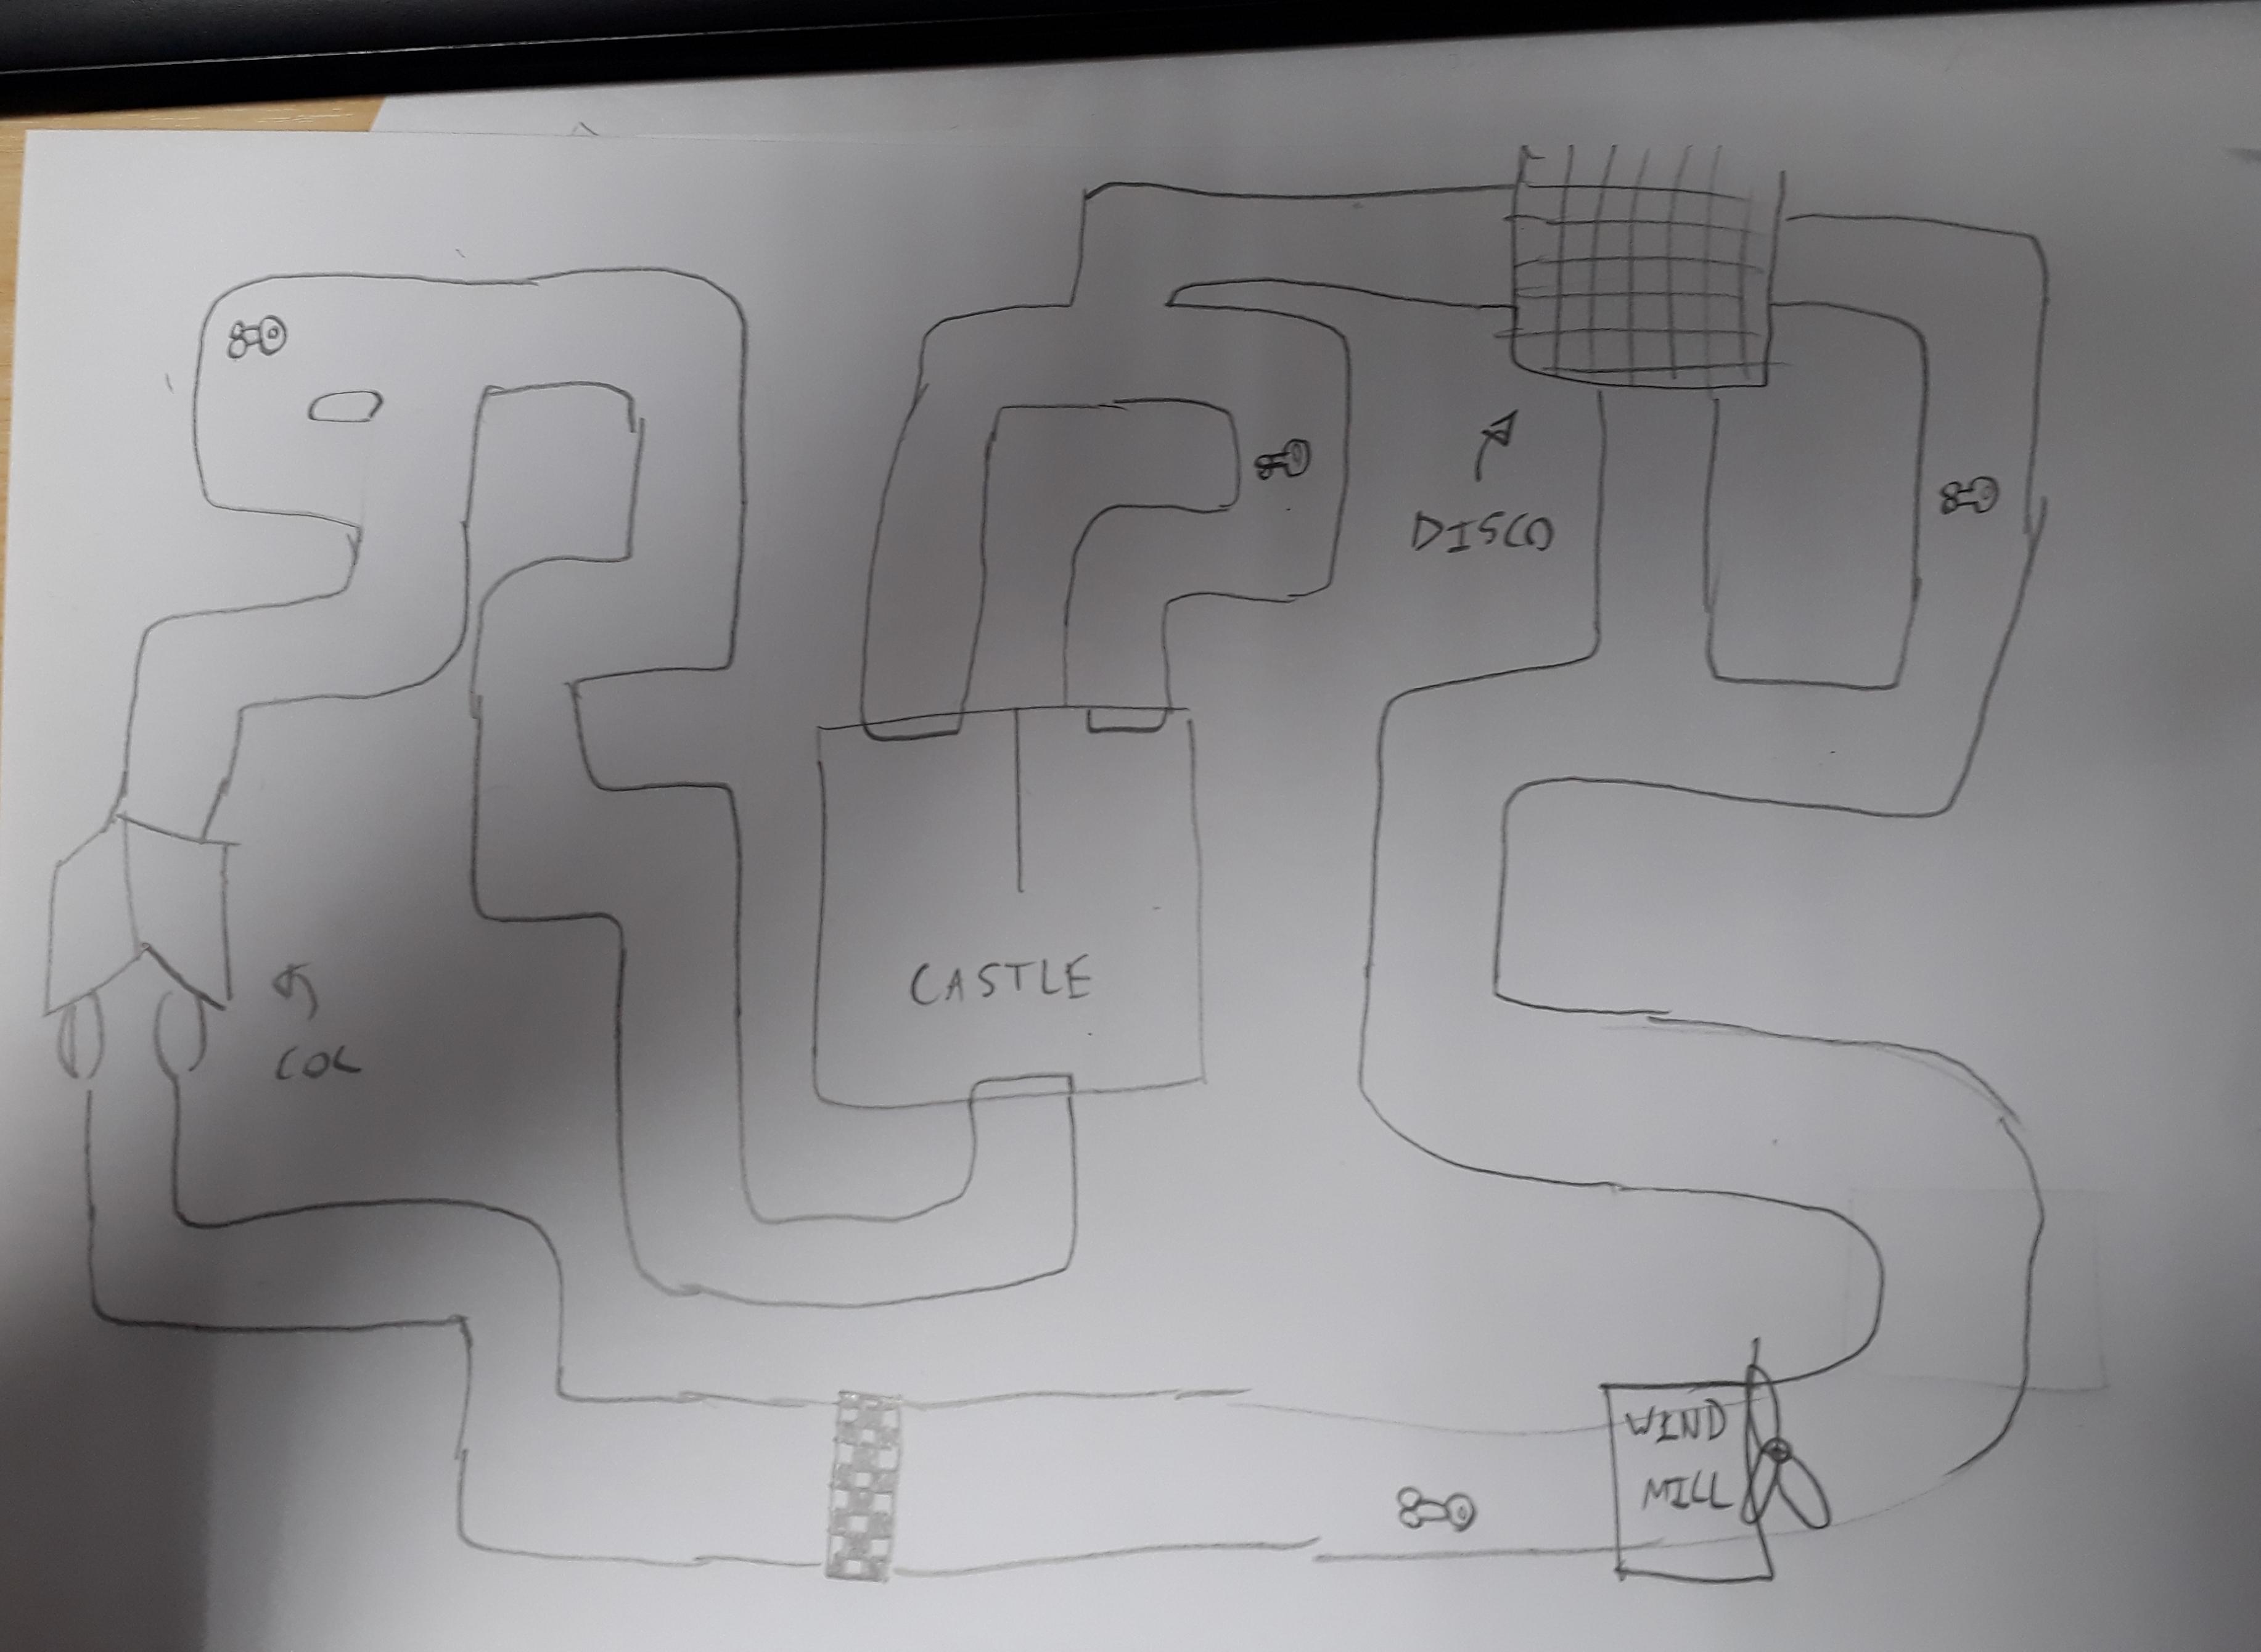 DISCO
CASTLE
COL
WIND
MILL